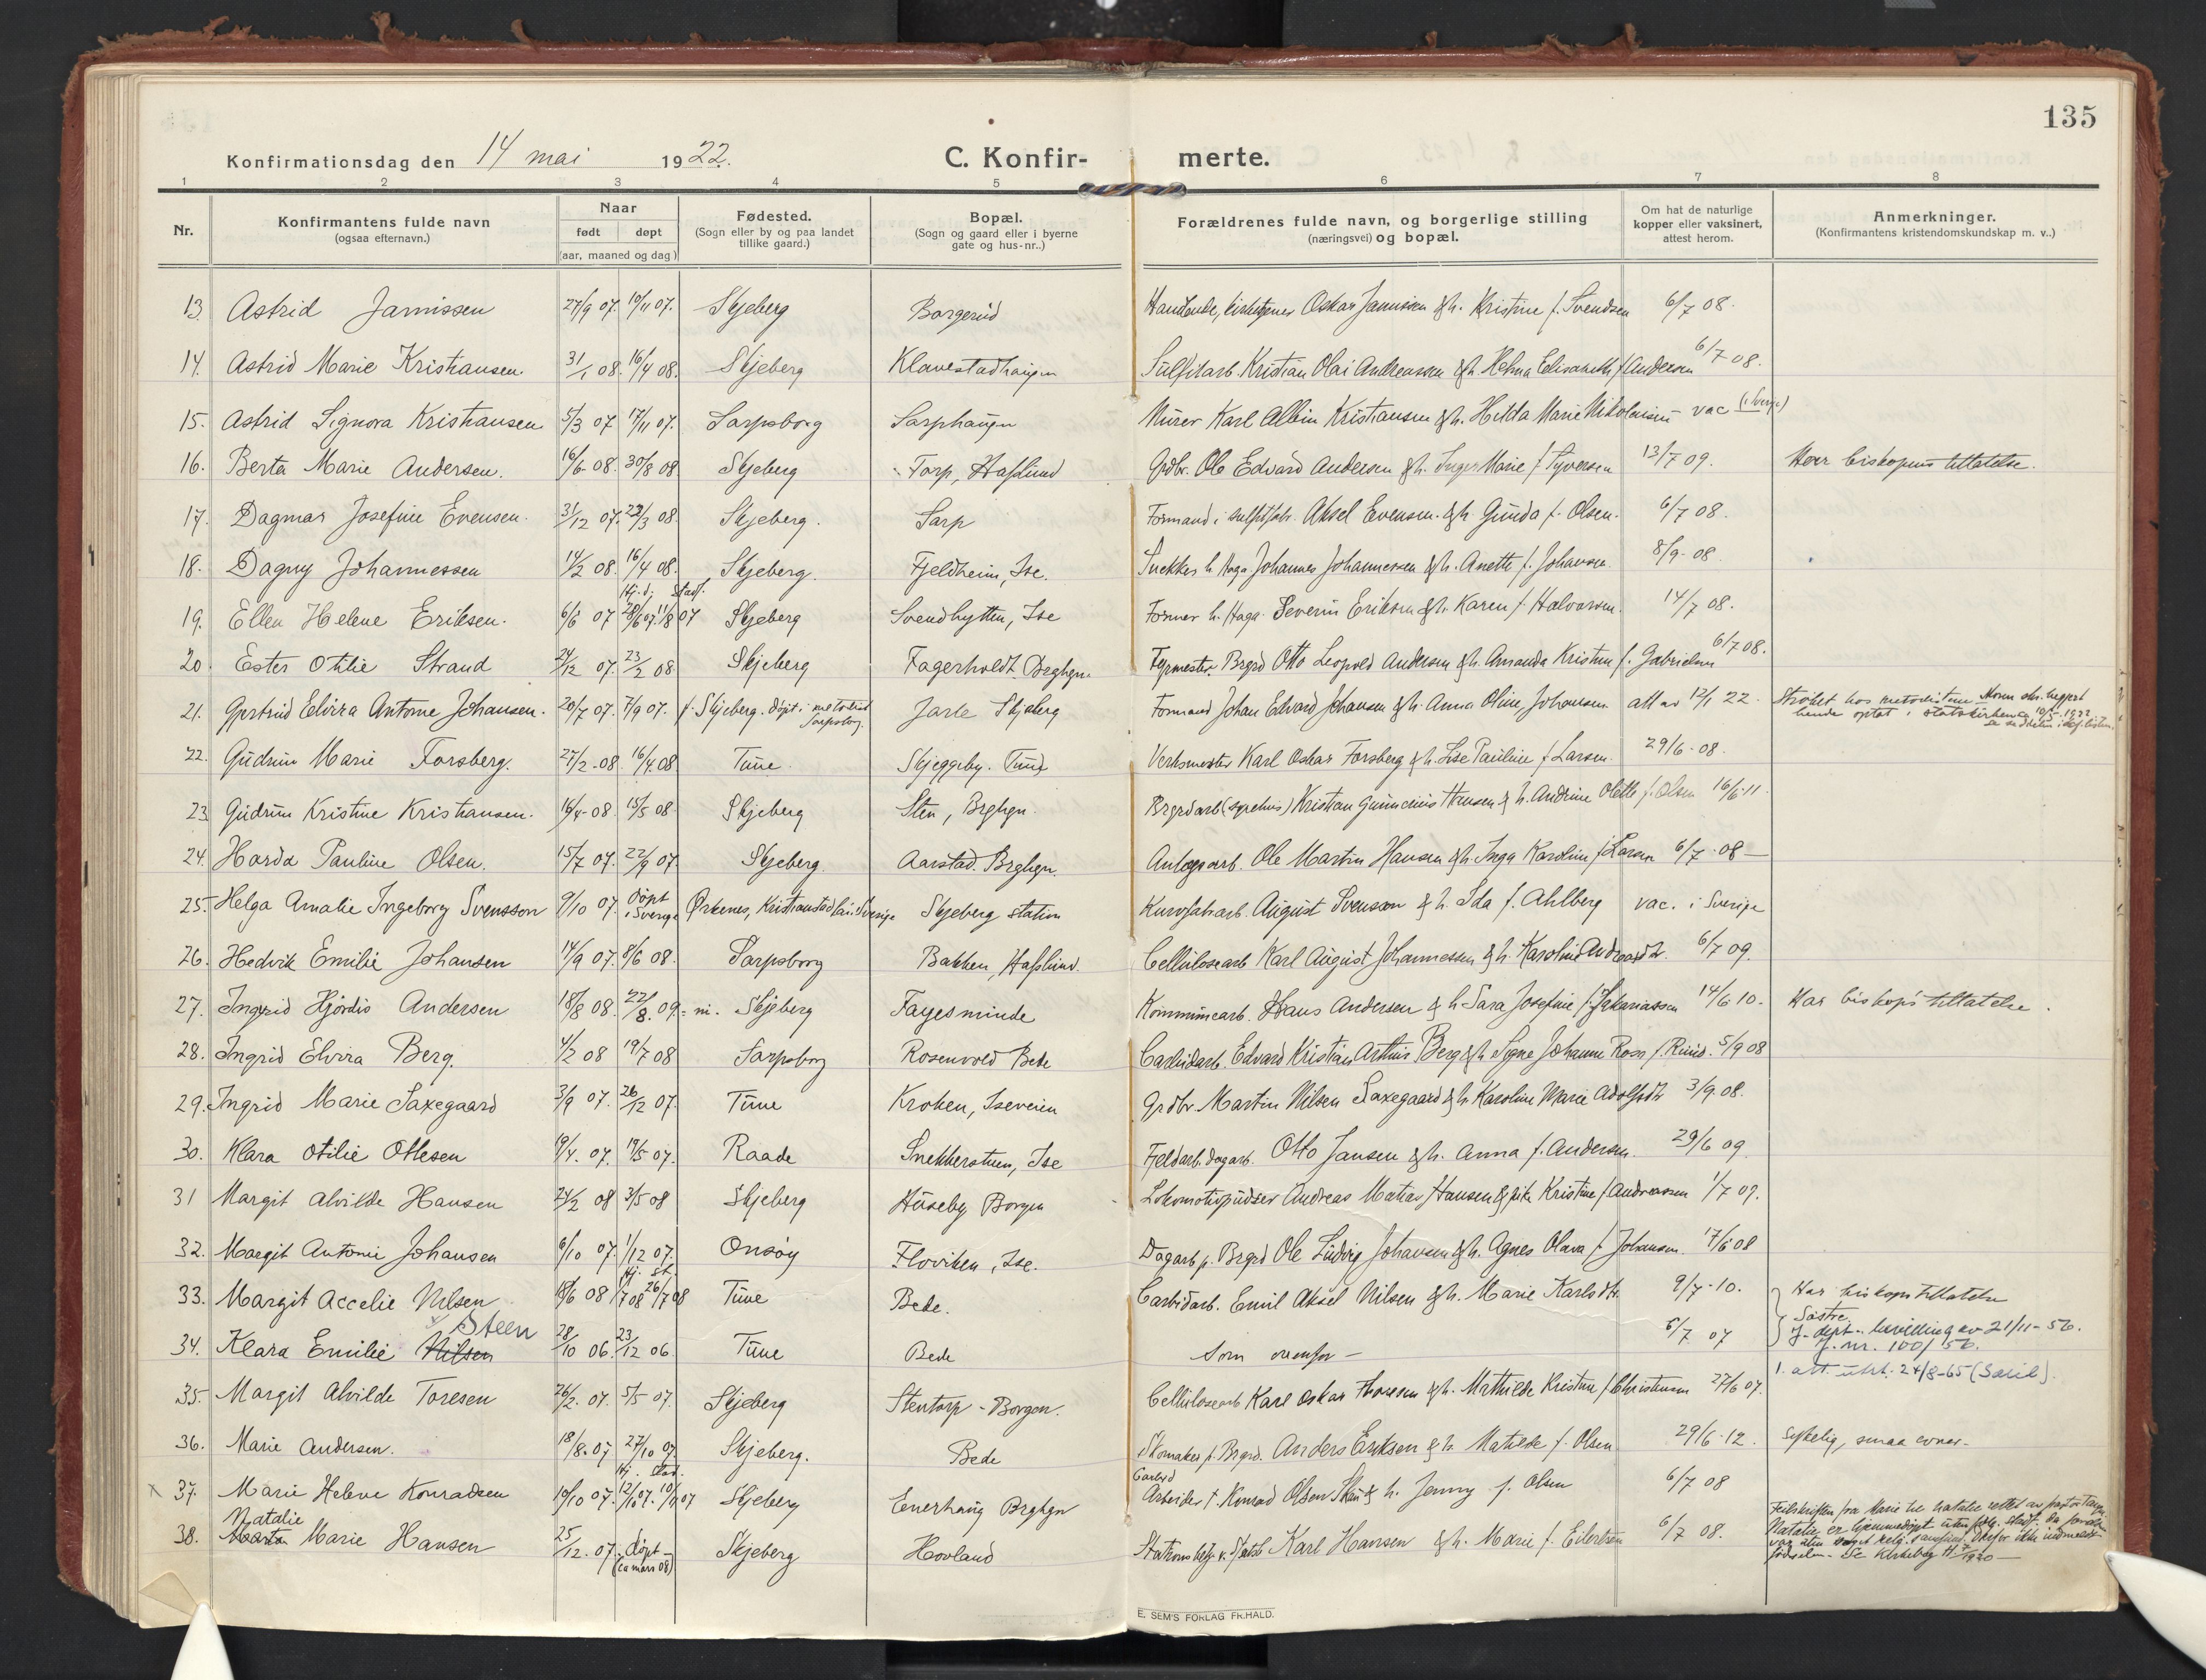 135
Konfirmationsdag den 14 mai 1922. C. Konfir- merte.
1 2 3 4 5 6 7 8
Nr. Konfirmantens fulde navn (ogsaa efternavn.) Naar født døpt (aar, maaned og dag) Fødested. (Sogn eller by og paa landet tillike gaard.) Bopæl. (Sogn og gaard eller i byerne gate og hus-nr..) Forældrenes fulde navn, og borgerlige stilling (næringsvei) og bopæl. Om hat de naturlige kopper eller vaksinert, attest herom. Anmerkninger. (Konfirmantens kristendomskundskap m. v..)
13. Astrid Jamissen 27/9 07. 10/11 07. Skjeberg Borgerud Oskar Jamissen & h. Kristine f. Svendsen 6/7 08.
14. Astrid Marie Kristiansen. 31/1 08. 16/4 08. Skjeberg Klavestadhaugen Sulfitarb. Kristian Olai Andreassen & h. Helma Elisabeth f. Andersen 6/7 08.
15. Astrid Signora Kristiansen 5/3 07 17/11 07. Sarpsborg Sarphaugen Murer Karl Albin Kristiansen & h. Hilda Marie Nikolaisen vac (i Sverge)
16. Berta Marie Andersen. 16/6 08. 30/8 08 Skjeberg Torp, Hafslund Grdbr. Ole Edvard Andersen & h. Inger Marie f. Syversen 13/7 09. Har biskopens tillatelse.
17. Dagmar Josefine Evensen. 31/12 07. 22/3 08. Skjeberg. Sarp Formand i sulfitfabr. Aksel Evensen & h. Gunda f. Olsen. 6/7 08.
18. Dagny Johannessen 14/2 08. 16/4 08. Skjeberg. Fjeldheim, Ise. Snekker h. Haga Johannes Johannessen & h. Anette f. Johansen. 8/9 08.
19. Ellen Helene Eriksen. 6/6 07 Hj.d. 28/6 07. stadf. 11/8 07 Skjeberg Svendhytten, Ise Former h. Haga. Severin Eriksen & h. Karen f. Halvorsen. 14/7 08.
20. Ester Otilie Strand 24/12 07. 23/2 08 Skjeberg Fagerholdt Brghgn. Fyrmester Brgrd Otto Leopold Andersen & h. Amanda Kristine f. Gabrielsen 6/7 08.
21. Gertrud Elvira Antonie Johansen. 20/7 07. 7/9 07. f. Skjeberg. døpt i metodist Sarpsborg. Jarle Skjeberg Formand Johan Edvard Johansen & h. Anna Oline Johansen att av 12/1 22. Strøket hos metodistene hende optat i statskirken 10/5 1922
22. Gudrun Marie Forsberg. 27/2 08. 16/4 08 Tune. Skjeggeby. Tune Verksmester Karl Oskar Forsberg & h. Lise Pauline f. Larsen. 29/6 08.
23. Gudrun Kristine Kristiansen. 16/4 08 15/5 08 Skjeberg Sten, Brghgn. Brgrdarb. Kristian Hansen & h. Andrine Olette f. Olsen 16/6 11.
24. Harda Pauline Olsen. 15/7 07. 22/9 07. Skjeberg. Aarstad. Brghgn. Anlægsarb. Ole Martin Hansen & h. Inga Karoline f. Larsen 6/7 08
25. Helga Amalie Ingeborg Svensson 9/10 07. Døpt i Sverige Ørkenes, Kristianstad län Sverige Skjeberg station Kurvfabarb. August Svensson & h. Ida f. Ahlberg vac. i Sverige
26. Hedvik Emilie Johansen 14/9 07. 8/6 08. Sarpsborg Bakken, Hafslund. Cellulosearb. Karl August Johannessen & h. Karoline Andreasdt. 6/7 09.
27. Ingrid Hjørdis Andersen 18/8 08. 22/8. 09. Skjeberg Fayesminde Kommunearb. Hans Andersen & h. Sara Josefine f. Zakariassen 14/6 10. Har biskops tillatelse.
28. Ingrid Elvira Berg. 4/2 08 19/7 08 Sarpsborg Rosenvold Bede Carbidarb. Edvard Kristian Arthur Berg & h. Signe Johanne Rosa f. Ruud. 5/9 08
29. Ingrid Marie Saxegaard 3/9 07. 26/12 07. Tune Kroken, Iseveien Grdbr. Martin Nilsen Saxegaard & h. Karoline Marie Adolfsdt. 3/9. 08.
30. Klara Otilie Ottesen 19/4. 07. 19/5 07. Raade Snekkerstuen, Ise Fjeldarb. dagarb. Otto Jansen & h. Anna f. Andersen. 29/6 09
31 Margit Alvilde Hansen 24/2 08 3/5 08 Skjeberg Huseby Borgen Lokomotivpudser Andreas Matias Hansen & pike Kristine f. Andreassen 1/7 09.
32. Margit Antonie Johansen 6/10 07. 1/12 07. Onsøy Floviken, Ise. Dagarb. p. Brgrd Ole Ludvig Johansen & h. Agnes Olava f. Johansen. 17/6 08
33. Margit Accelie Nilsen 18/6 08 Hj. 1/7 08 st. 26/7 08 Tune Bede. Carbidarb. Emil Aksel Nilsen & h. Marie Karlsdt. 9/7 10. Har biskops tillatelse
34. Klara Emilie Nilsen Steen 28/10 06. 23/12 06. Tune Bede Som ovenfor — 6/7 07 Søstre. J-dept. bevilling av 21/11-56. J.nr. 100/56.
35. Margit Alvilde Toresen 26/2. 07. 5/5 07. Skjeberg Stentorp - Borgen. Cellulosearb Karl Oskar Thoresen & h. Mathilde Kristine f. Christensen 27/6 07. 1. att. utst. 24/8-65
36. Marie Andersen. 18/8. 07 27/10 07 Skjeberg. Bede Skomaker p. Brgrd. Anders Eriksen & h. Matilde f. Olsen 29/6 12. Sykelig, smaa evner.
x 37. Marie Helene Konradsen 10/10 07. Hj. 12/10 07. stad. 10/11 07 Skjeberg Enerhaug Brghgn Carbid Arbeider f. Konrad Olsen & h. Jenny f. Olsen 6/7 08
38. Natalie Marie Hansen 25/12. 07. døpt (ca mars 08) Skjeberg Hovland Stationsbetj. v. Karl Hansen & h. Marie f. Eilertsen 6/7 08. Feilskriften fra Marie til Natalie rettet av Natalie er hjemmedøpt uten fødselen. Se Kirkebog 1920
E. SEM'S FORLAG FR.HALD.